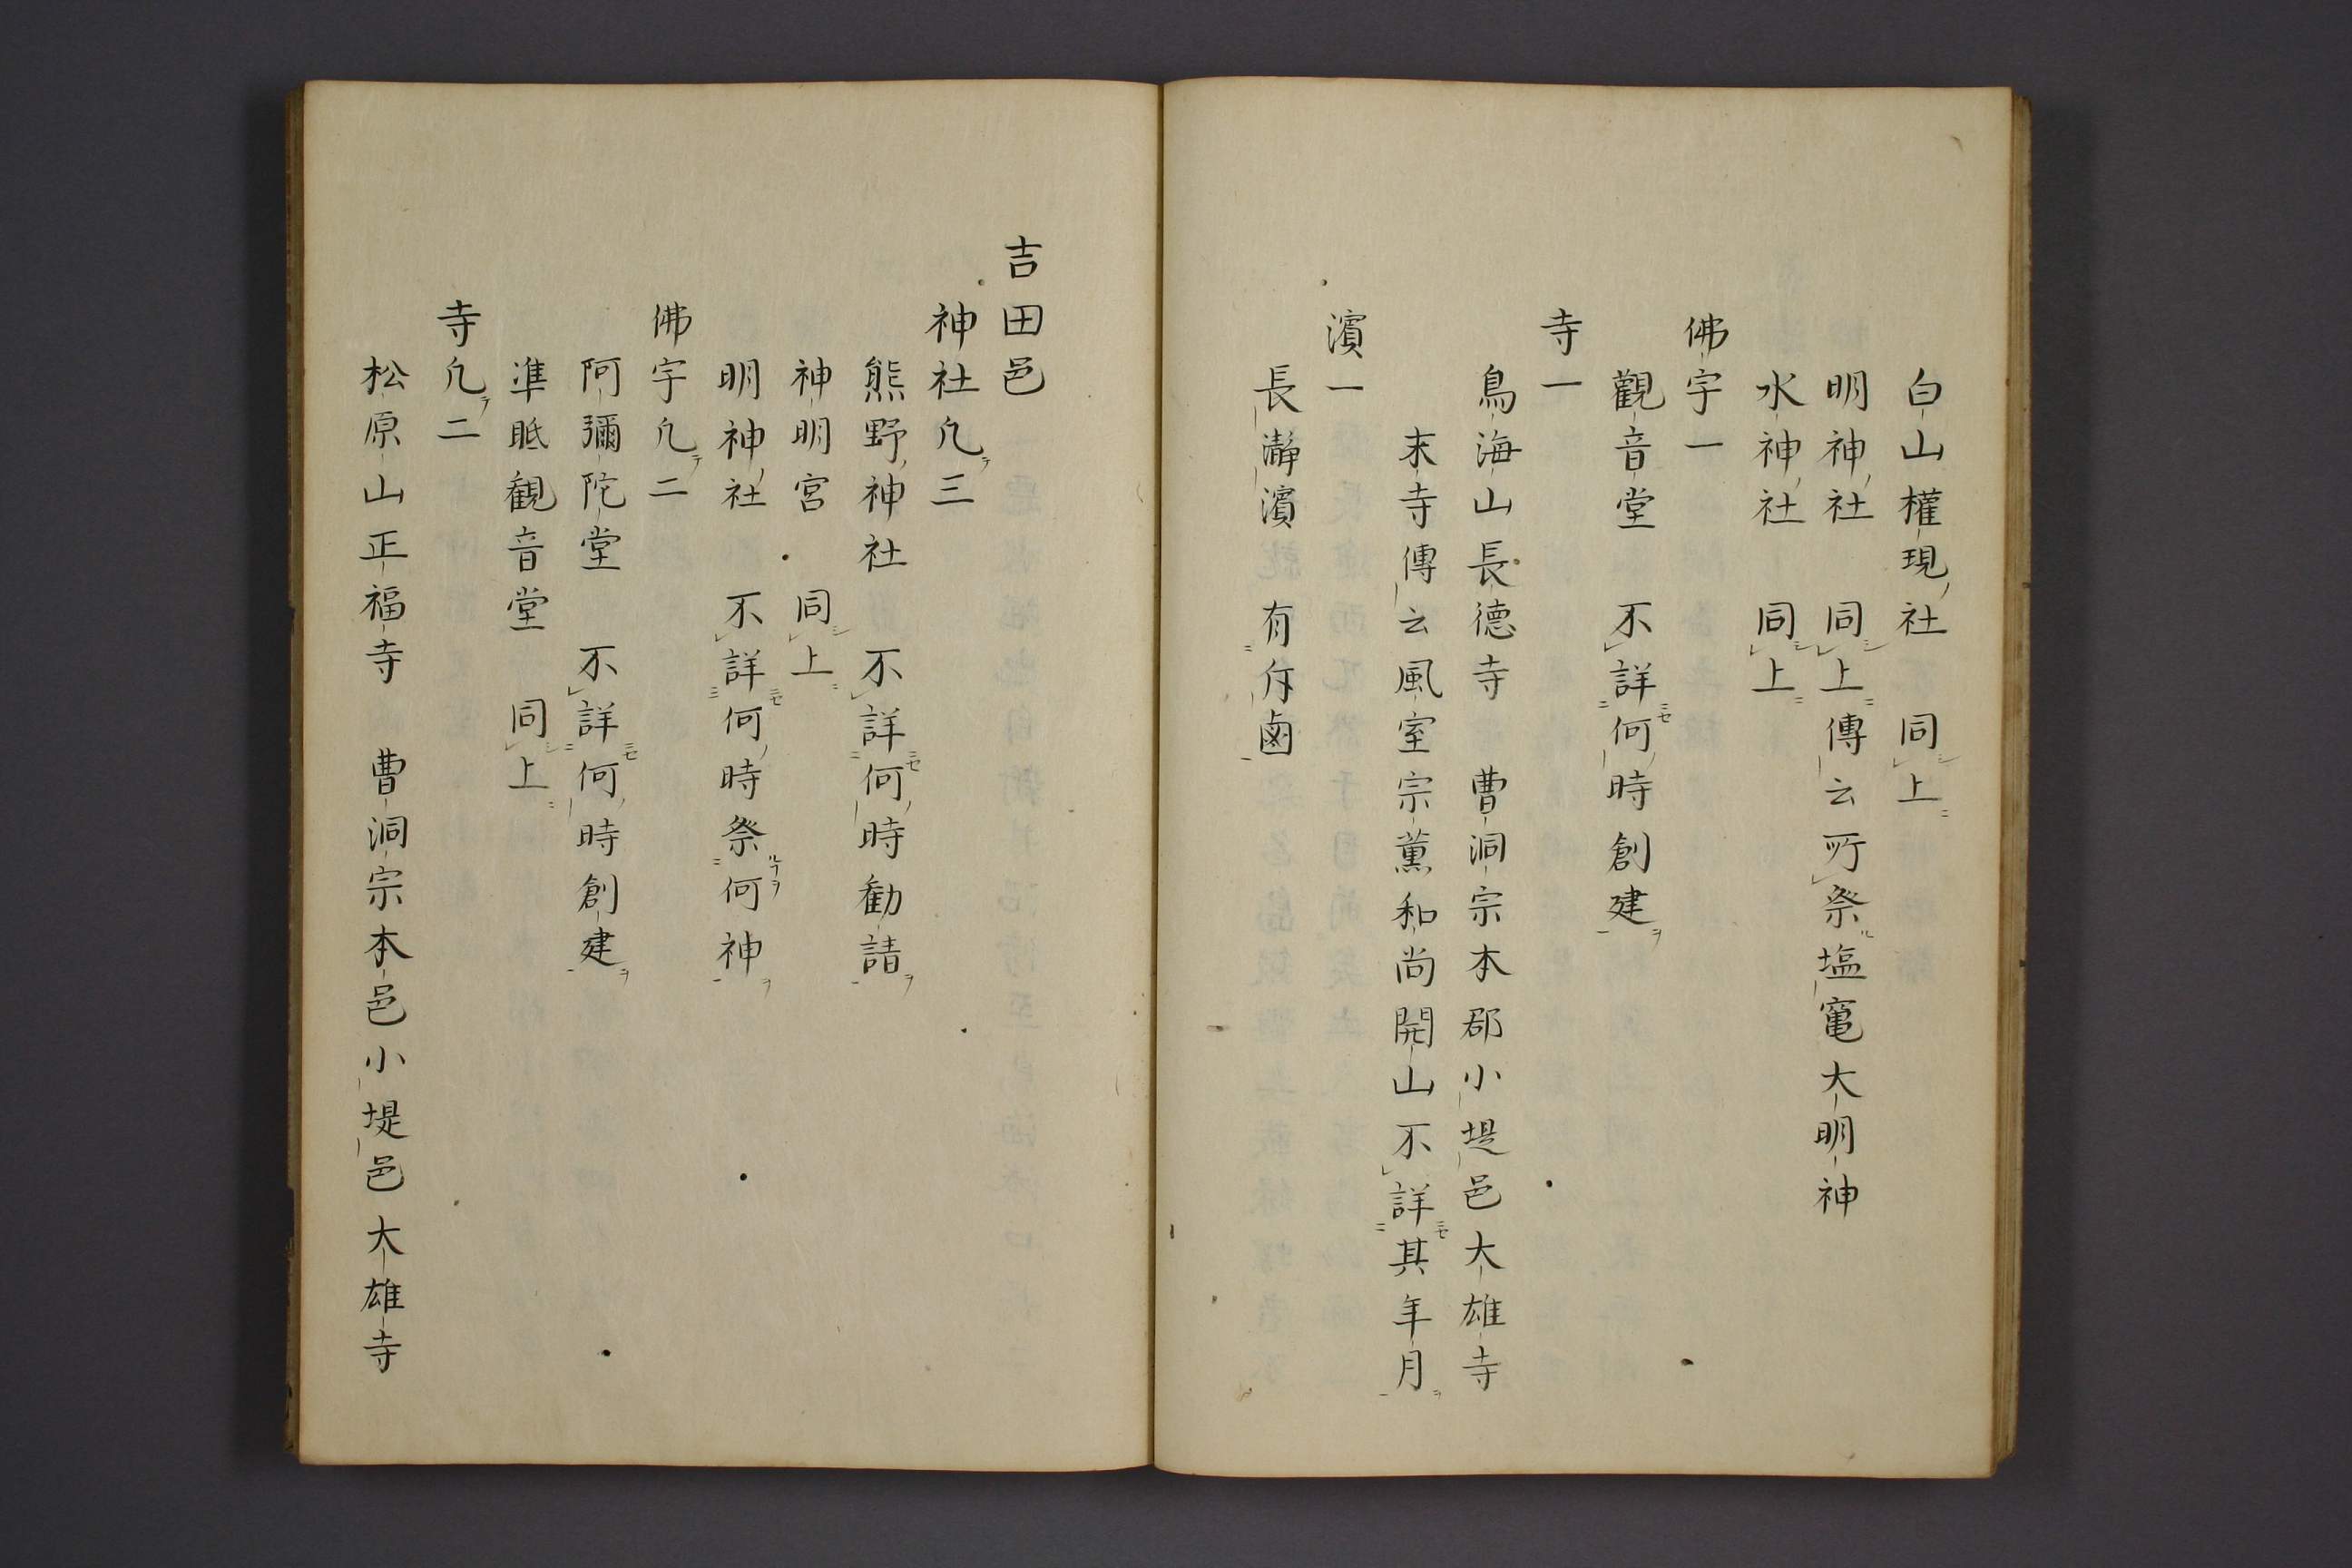 白山權現社　同上
明神社　同上傳云所祭塩竃大明神
水神社　同上
佛宇一
觀音堂　不詳何時創建
寺一
鳥海山長德寺　曹洞宗本郡小堤邑大雄寺
末寺傳云風室宗薫和尚開山不詳其年月
濱一
長瀞濱　有斥鹵
吉田邑
神社凢三
熊野神社　不詳何時勧請
神明宮　同上
明神社　不詳何時祭何神
佛宇凢二
阿彌陀堂　不詳何時創建
準眡観音堂　同上
寺凢二
松原山正福寺　曹洞宗本邑小堤邑大雄寺